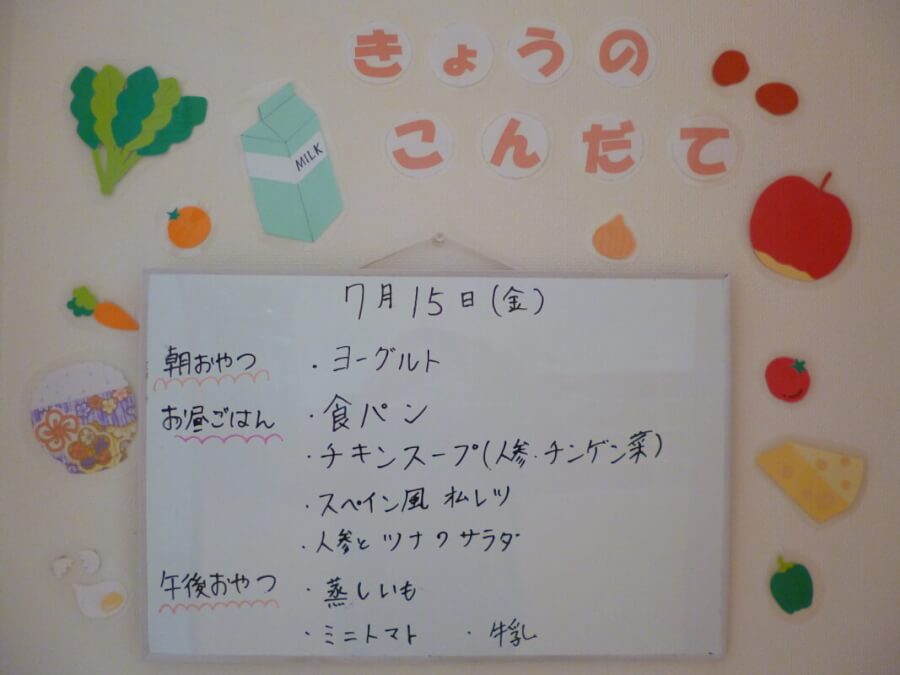 きょうの
こんだて
MILK
7月15日(金)
朝おやつ ・ヨーグルト
お昼ごはん ・食パン
・チキンスープ(人参・チンゲン菜)
・スペイン風オムレツ
・人参とツナのサラダ
午後おやつ ・蒸しいも
・ミニトマト ・牛乳